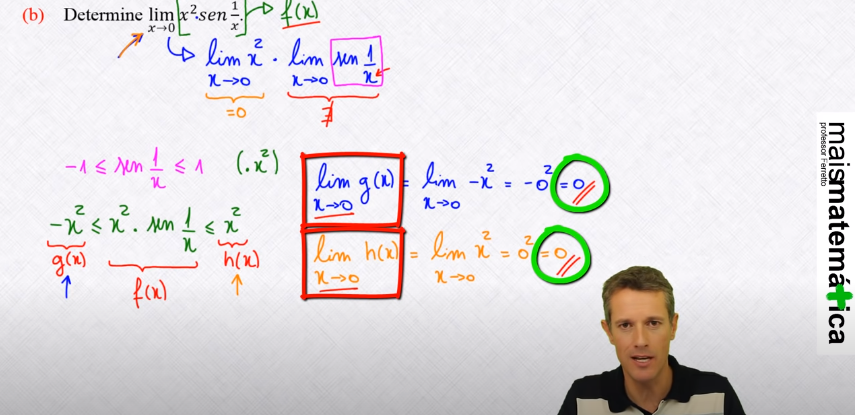 (b) Determine lim x→0 [x².sen 1/x.] → f(x)
lim x→0 x² · lim x→0 sen 1/x
=0 ∄
-1 ≤ sen 1/x ≤ 1 (.x²)
-x² ≤ x². sen 1/x ≤ x²
g(x) f(x) h(x)
lim x→0 g(x) = lim x→0 -x² = -0² = 0
lim x→0 h(x) = lim x→0 x² = 0² = 0
maismatemática
professor Ferretto